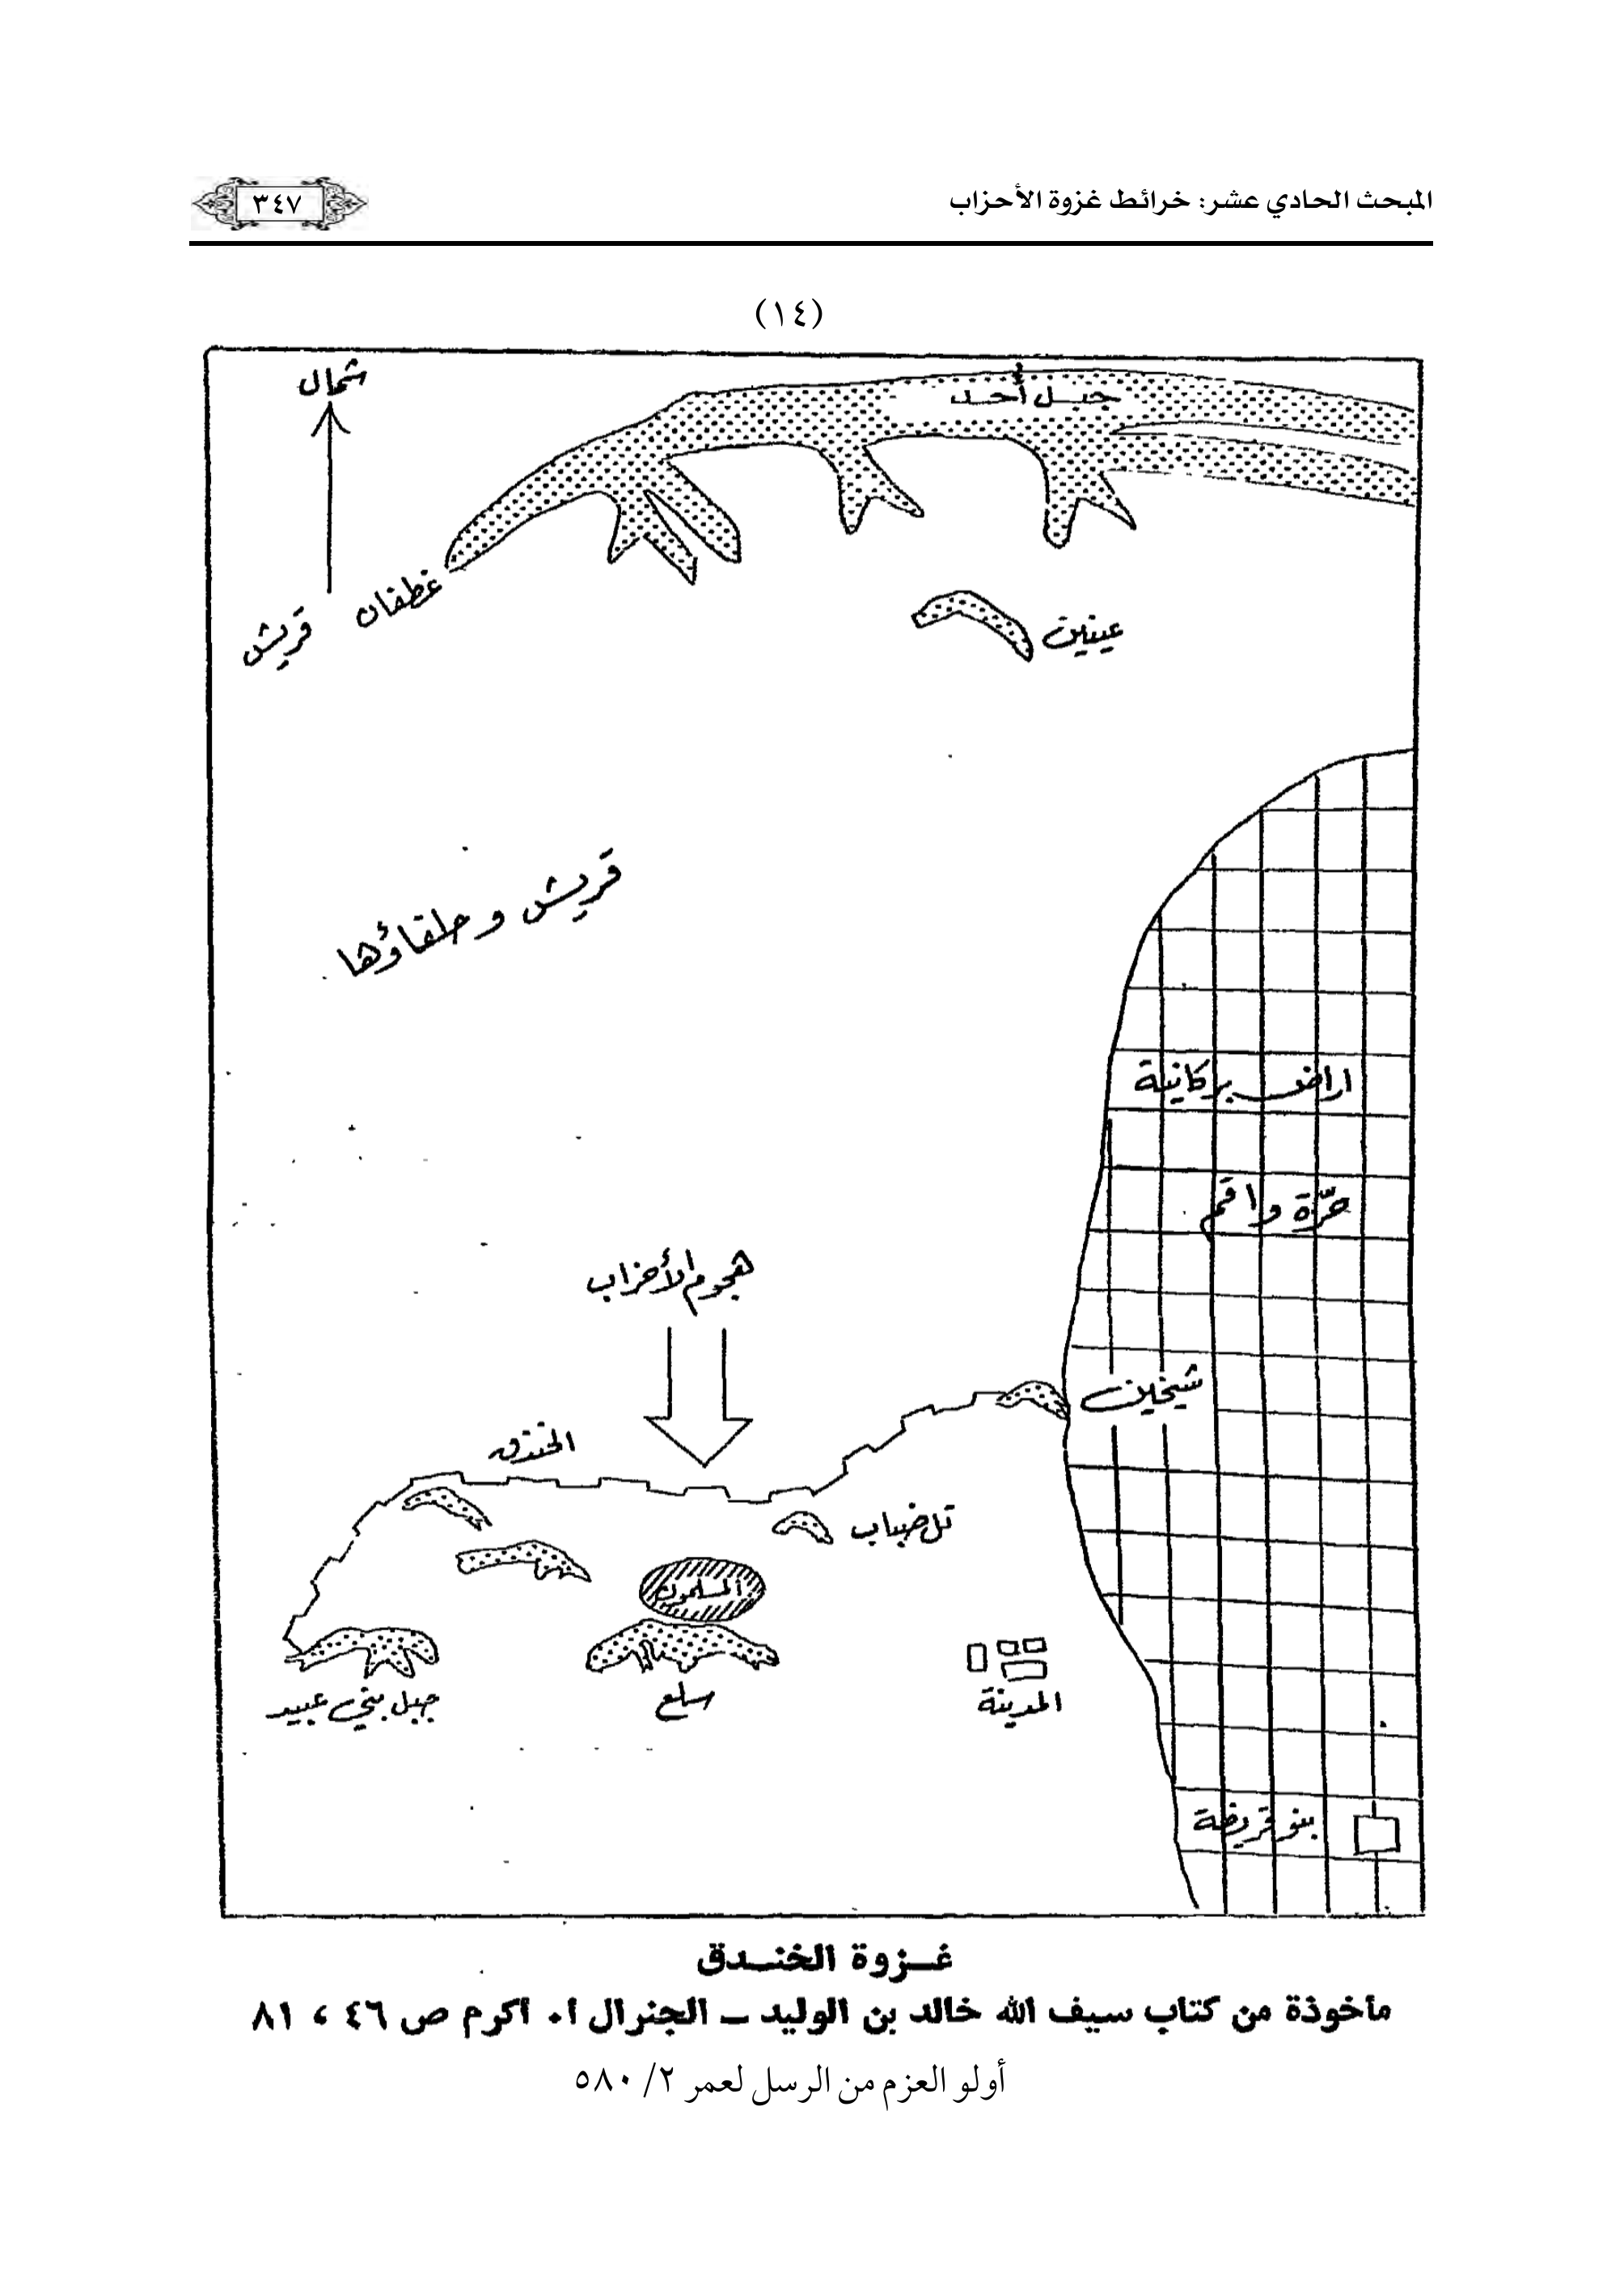 المبحث الحادي عشر: خرائط غزوة الأحزاب
٣٤٧
(١٤)
شمال
جبل أُحد
غطفان
قريش
عينين
قريش و حلفاؤها
اراضى بركانية
حرّة واقم
هجوم الأحزاب
شيخين
الخندق
تل ضباب
المسلمون
جبل بني عبيد
سلع
المدينة
بنو قريضة
غـزوة الخنـدق
مأخوذة من كتاب سيف الله خالد بن الوليد ــ الجنرال أ. أكرم ص ٤٦ ، ٨١
أولو العزم من الرسل لعمر ٢/ ٥٨٠